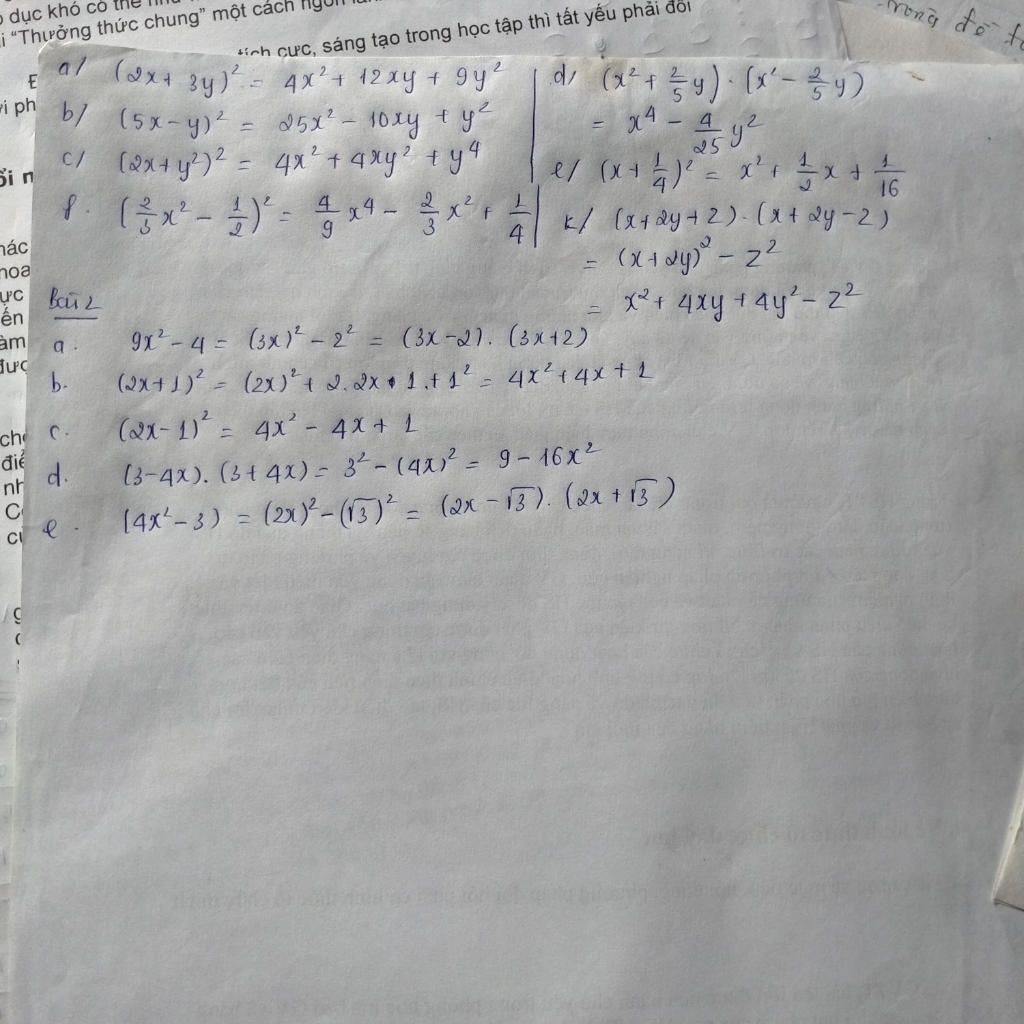 dục khó có thể như
"Thưởng thức chung" một cách ngôn
tích cực, sáng tạo trong học tập thì tất yếu phải đổi
trong đề
a/ (2x + 3y)² = 4x² + 12xy + 9y²
b/ (5x - y)² = 25x² - 10xy + y²
c/ (2x + y²)² = 4x² + 4xy² + y⁴
f. (2/3 x² - 1/2)² = 4/9 x⁴ - 2/3 x² + 1/4
d/ (x² + 2/5 y) . (x² - 2/5 y)
= x⁴ - 4/25 y²
e/ (x + 1/4)² = x² + 1/2 x + 1/16
k/ (x + 2y + z) . (x + 2y - z)
= (x + 2y)² - z²
= x² + 4xy + 4y² - z²
Bài 2
a. 9x² - 4 = (3x)² - 2² = (3x - 2) . (3x + 2)
b. (2x + 1)² = (2x)² + 2.2x.1.+ 1² = 4x² + 4x + 1
c. (2x - 1)² = 4x² - 4x + 1
d. (3 - 4x) . (3 + 4x) = 3² - (4x)² = 9 - 16x²
e. (4x² - 3) = (2x)² - (√3)² = (2x - √3) . (2x + √3)